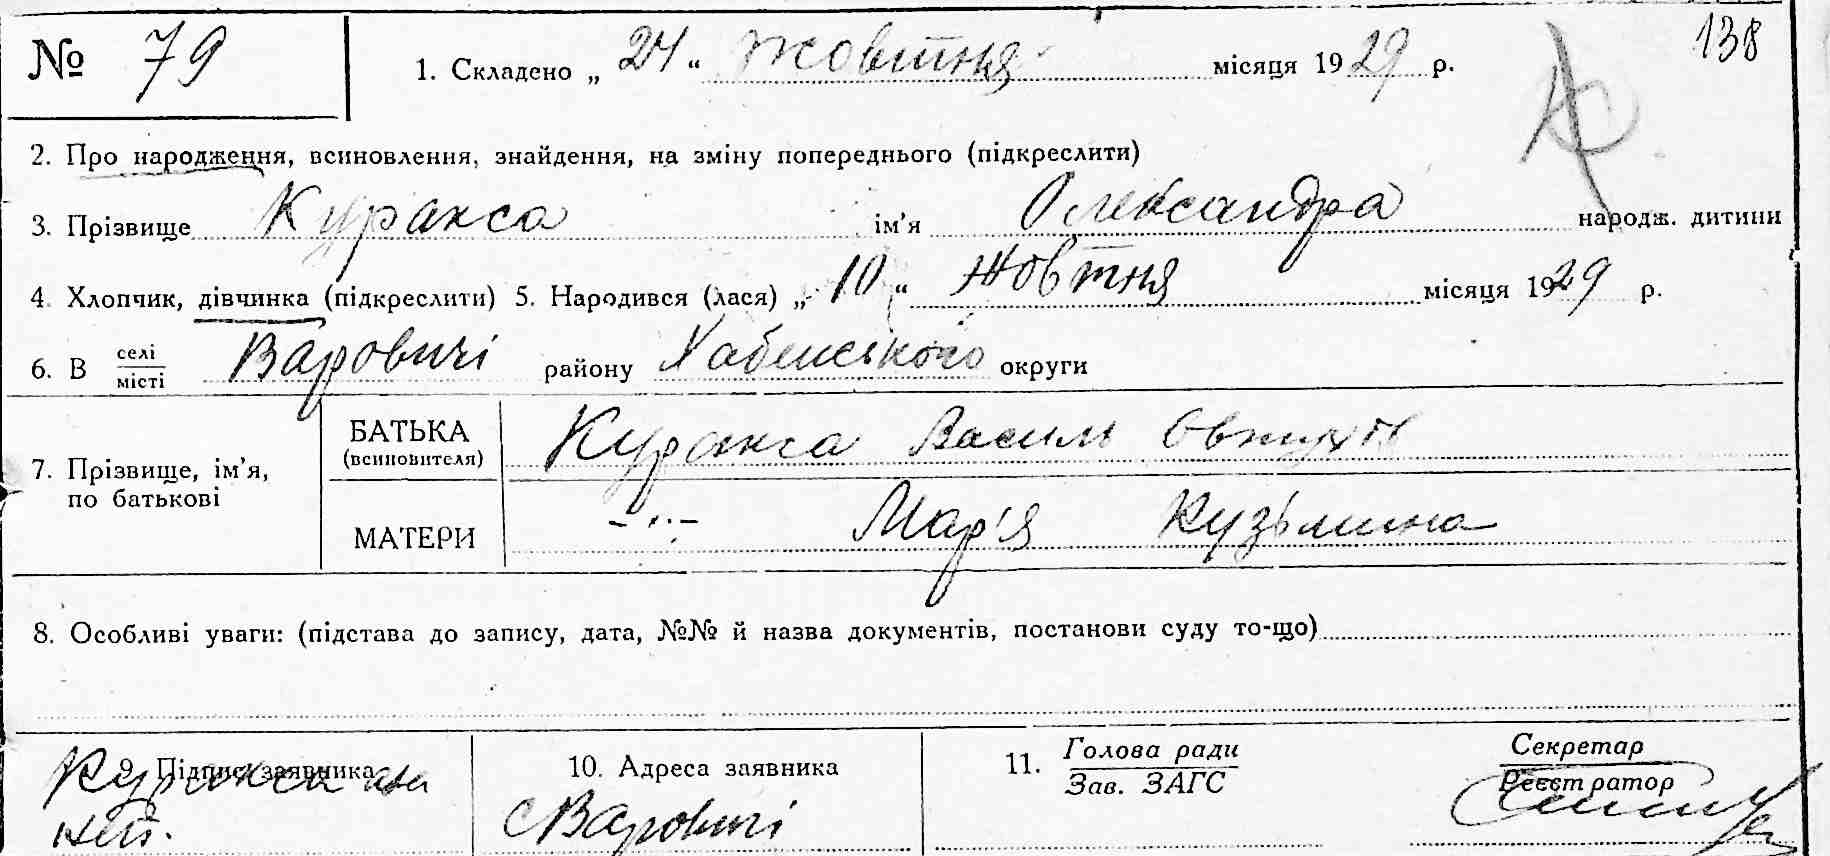 № 79 1. Складено „ 24 “ жовтня місяця 1929 р. 138
2. Про народження, всиновлення, знайдення, на зміну попереднього (підкреслити)
3. Прізвище Куракса ім’я Олександра народж. дитини
4. Хлопчик, дівчинка (підкреслити) 5. Народився (лася) „ 10 “ жовтня місяця 1929 р.
6. В селі Варовичі району Хабенського округи
місті
БАТЬКА Куракса Василь
(всиновителя)
7. Прізвище, ім’я,
по батькові
МАТЕРИ -"- Мар'я Кузьмина
8. Особливі уваги: (підстава до запису, дата, №№ й назва документів, постанови суду то-що)
9. Підпис заявника 10. Адреса заявника 11. Голова ради Секретар
Зав. ЗАГС Реєстратор
Куракса
с Варовичі